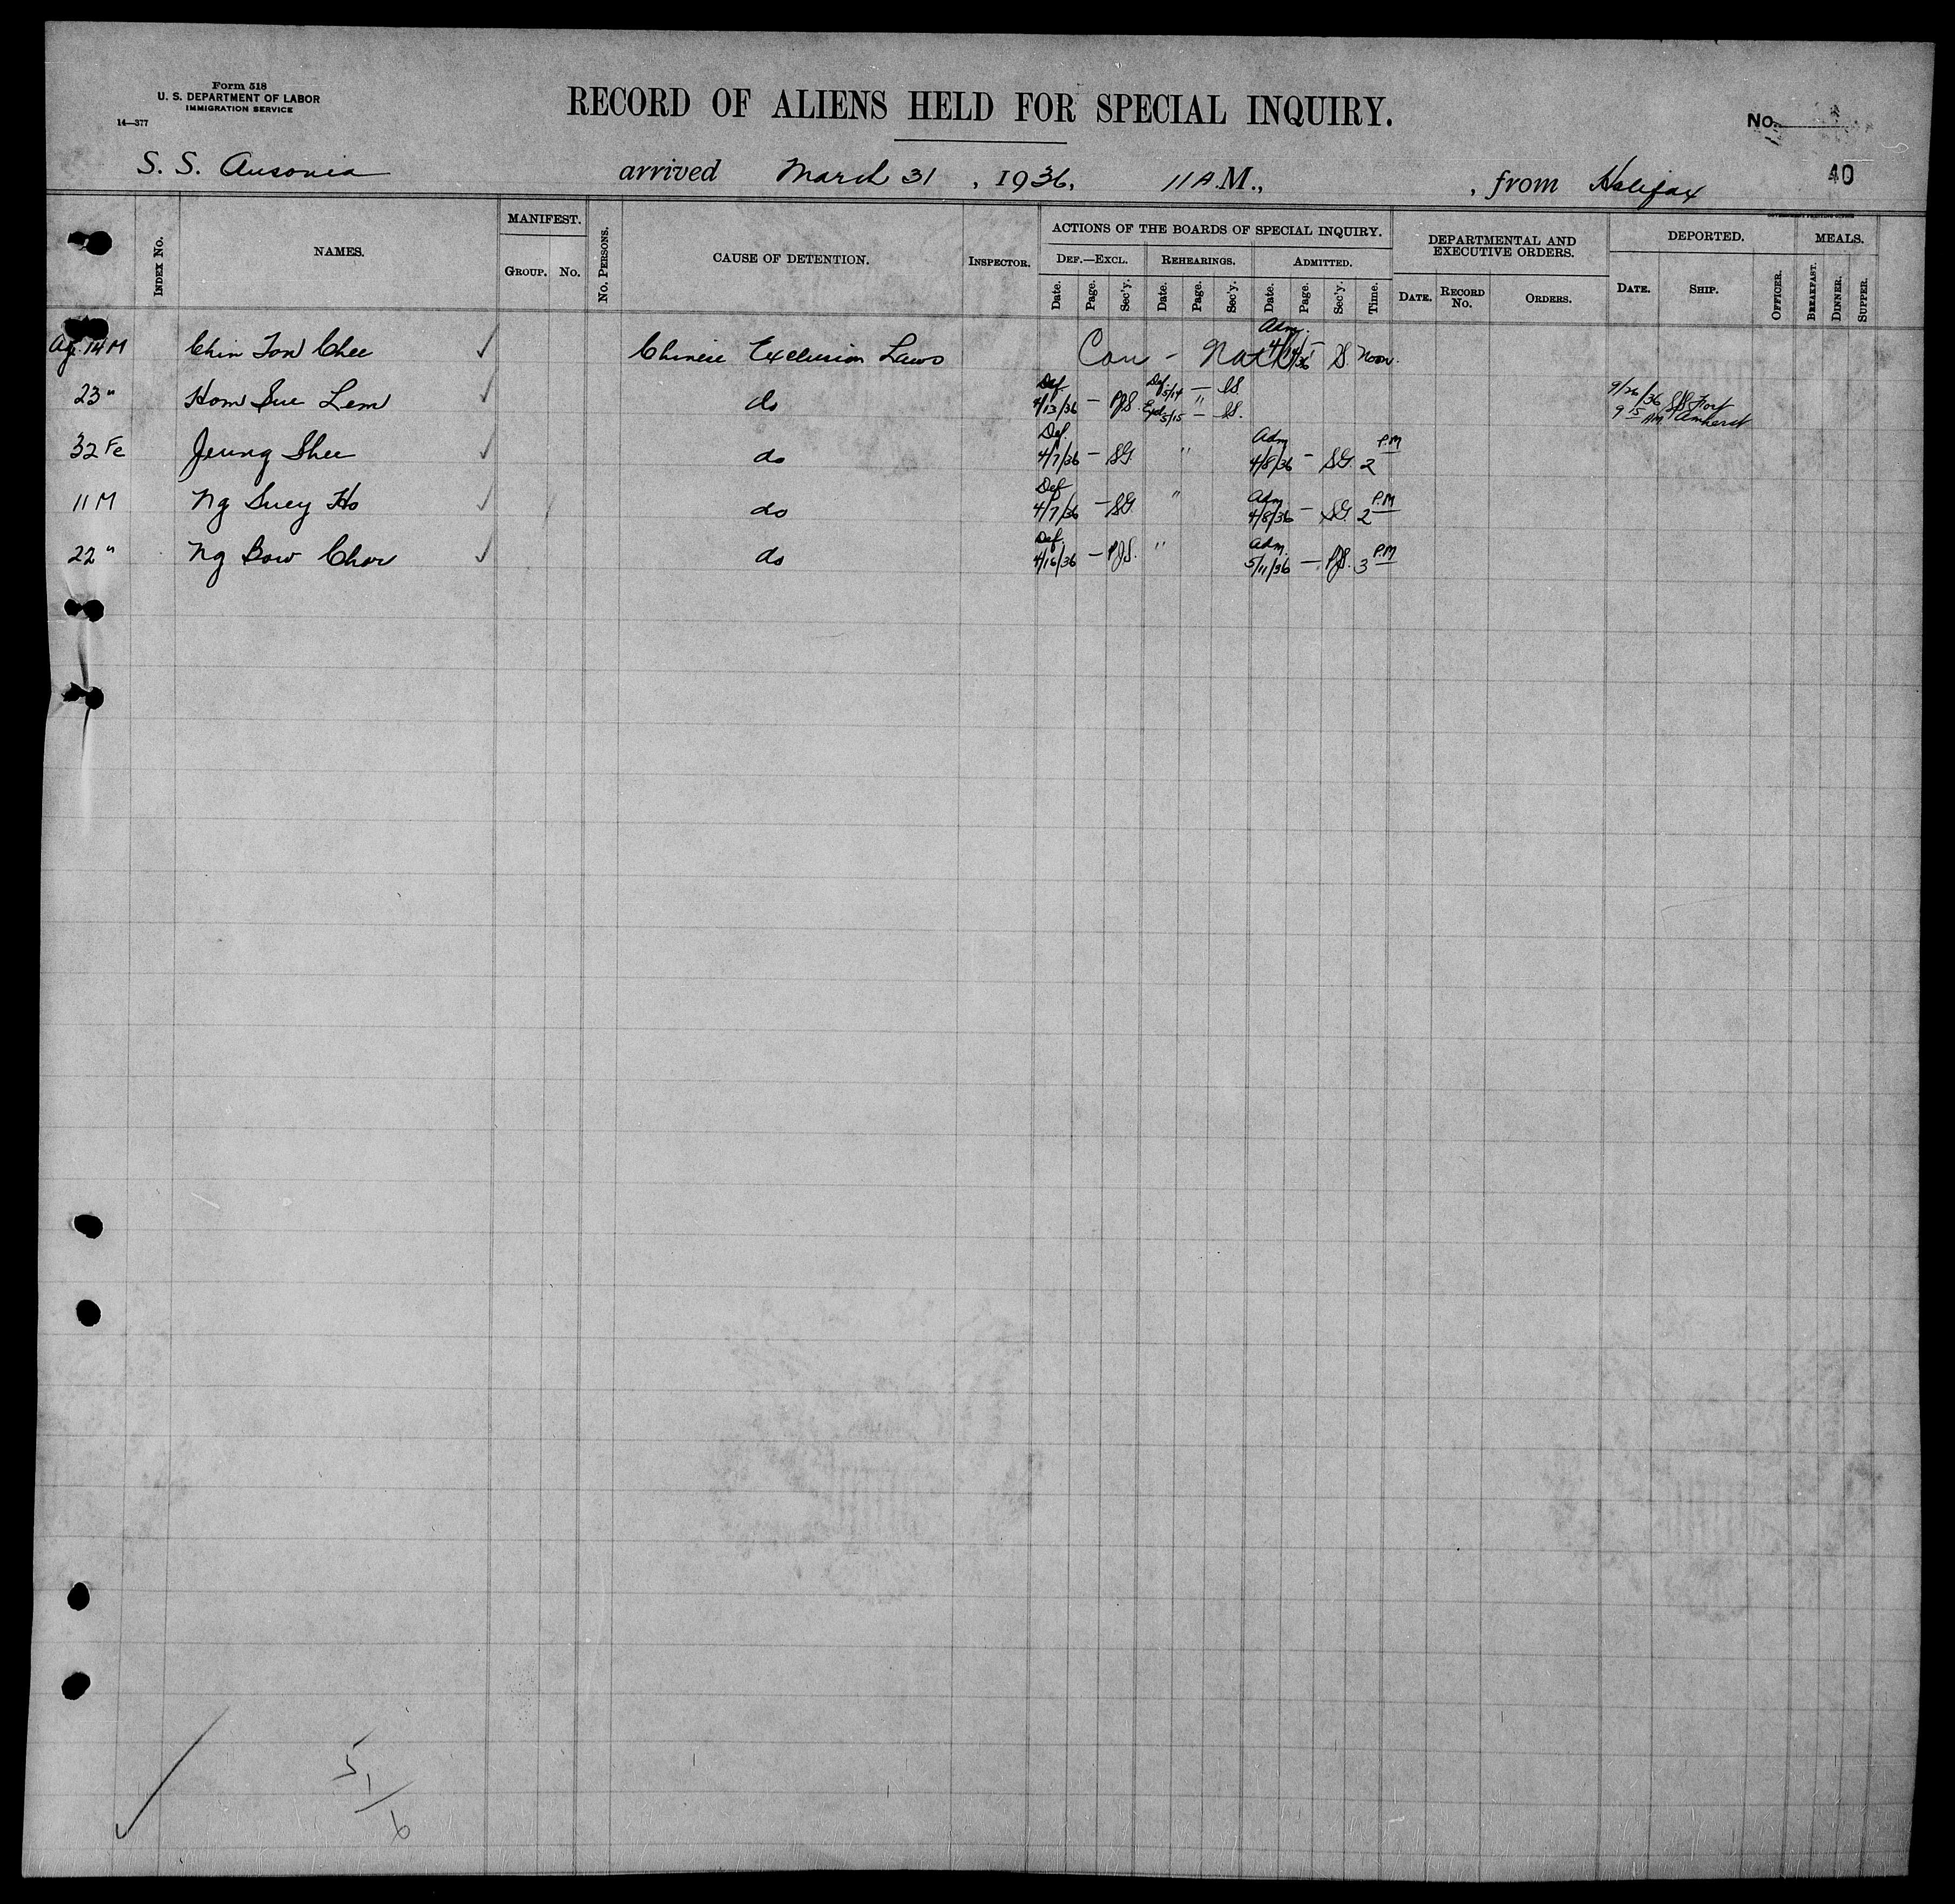 Form 518
U. S. DEPARTMENT OF LABOR
IMMIGRATION SERVICE
14—377
RECORD OF ALIENS HELD FOR SPECIAL INQUIRY.
No.
40
S. S. Ausonia arrived March 31, 1936, 11 A.M., , from Halifax
INDEX NO. NAMES. MANIFEST. GROUP. NO. NO. PERSONS. CAUSE OF DETENTION. INSPECTOR.
ACTIONS OF THE BOARDS OF SPECIAL INQUIRY.
DEF.—EXCL. REHEARINGS. ADMITTED.
Date. Page. Sec'y. Date. Page. Sec'y. Date. Page. Sec'y. Time.
DEPARTMENTAL AND EXECUTIVE ORDERS.
DATE. RECORD NO. ORDERS.
DEPORTED.
DATE. SHIP. OFFICER.
MEALS.
BREAKFAST. DINNER. SUPPER.
14 M Chin Chee Chinese Exclusion Laws Can - Adm. — S. Noon.
23 " Hom Sue Lem do Def 4/13/36 — PJS. Def. 5/14 — " 5/15 — 9/26/36 9 15 AM SS Fort Amherst
32 Fe Jeung Shee do Def. 4/7/36 — SG " Adm 4/8/36 — SG. 2 P.M
11 M Ng Suey Ho do Def 4/7/36 — SG " Adm 4/8/36 — SG. 2 P.M
22 " Ng Bow Chow do Def. 4/16/36 — PJS. " Adm. 5/11/36 — PJS. 3 P.M
5
1
6